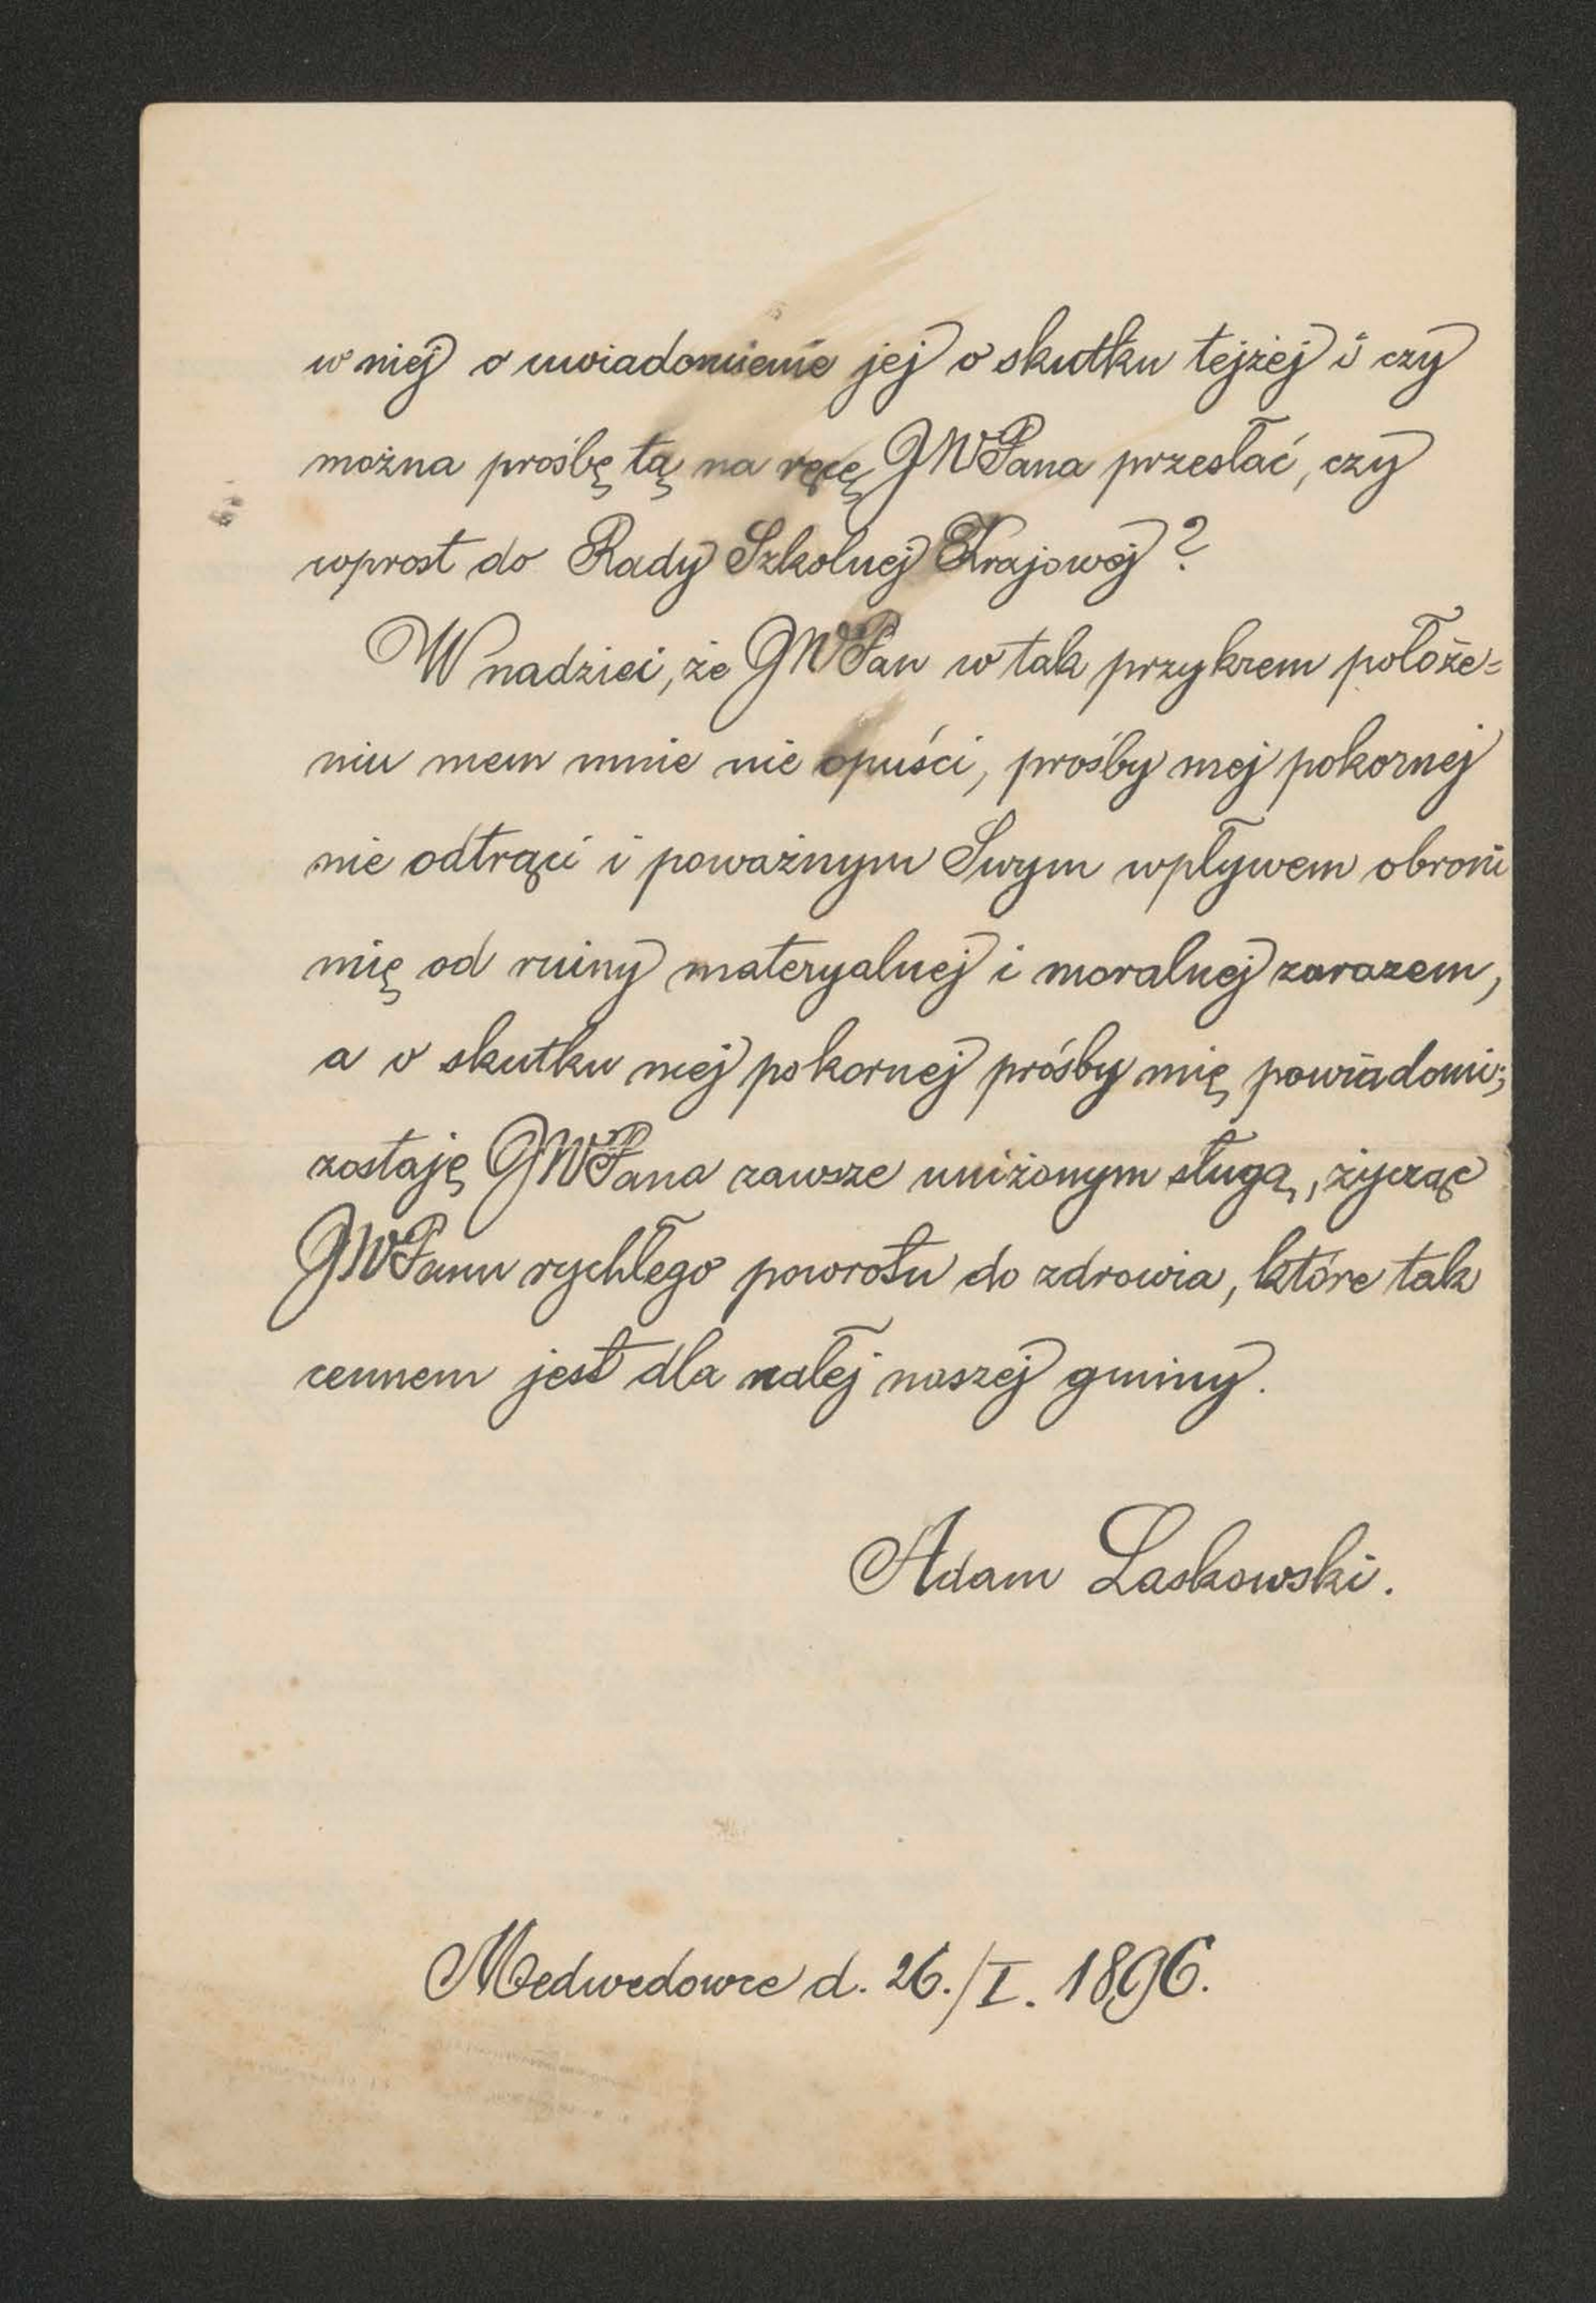 w niej o uwiadomienie jej o skutku tejżej i czy
można prośbę tą na ręcę JWPana przesłać, czy
wprost do Rady Szkolnej Krajowej?
W nadziei, że JWPan w tak przykrem położe=
niu mem mnie nie opuści, prośby mej pokornej
nie odtrąci i poważnym Swym wpływem obroni
mię od ruiny materyalnej i moralnej zarazem,
a o skutku mej pokornej próśby mię powiadomi;
zostaję JWPana zawsze uniżonym sługą, życząc
JWPanu rychłego powrotu do zdrowia, które tak
cennem jest dla całej naszej gminy.
Adam Laskowski.
Medwedowce d. 26./I. 1896.